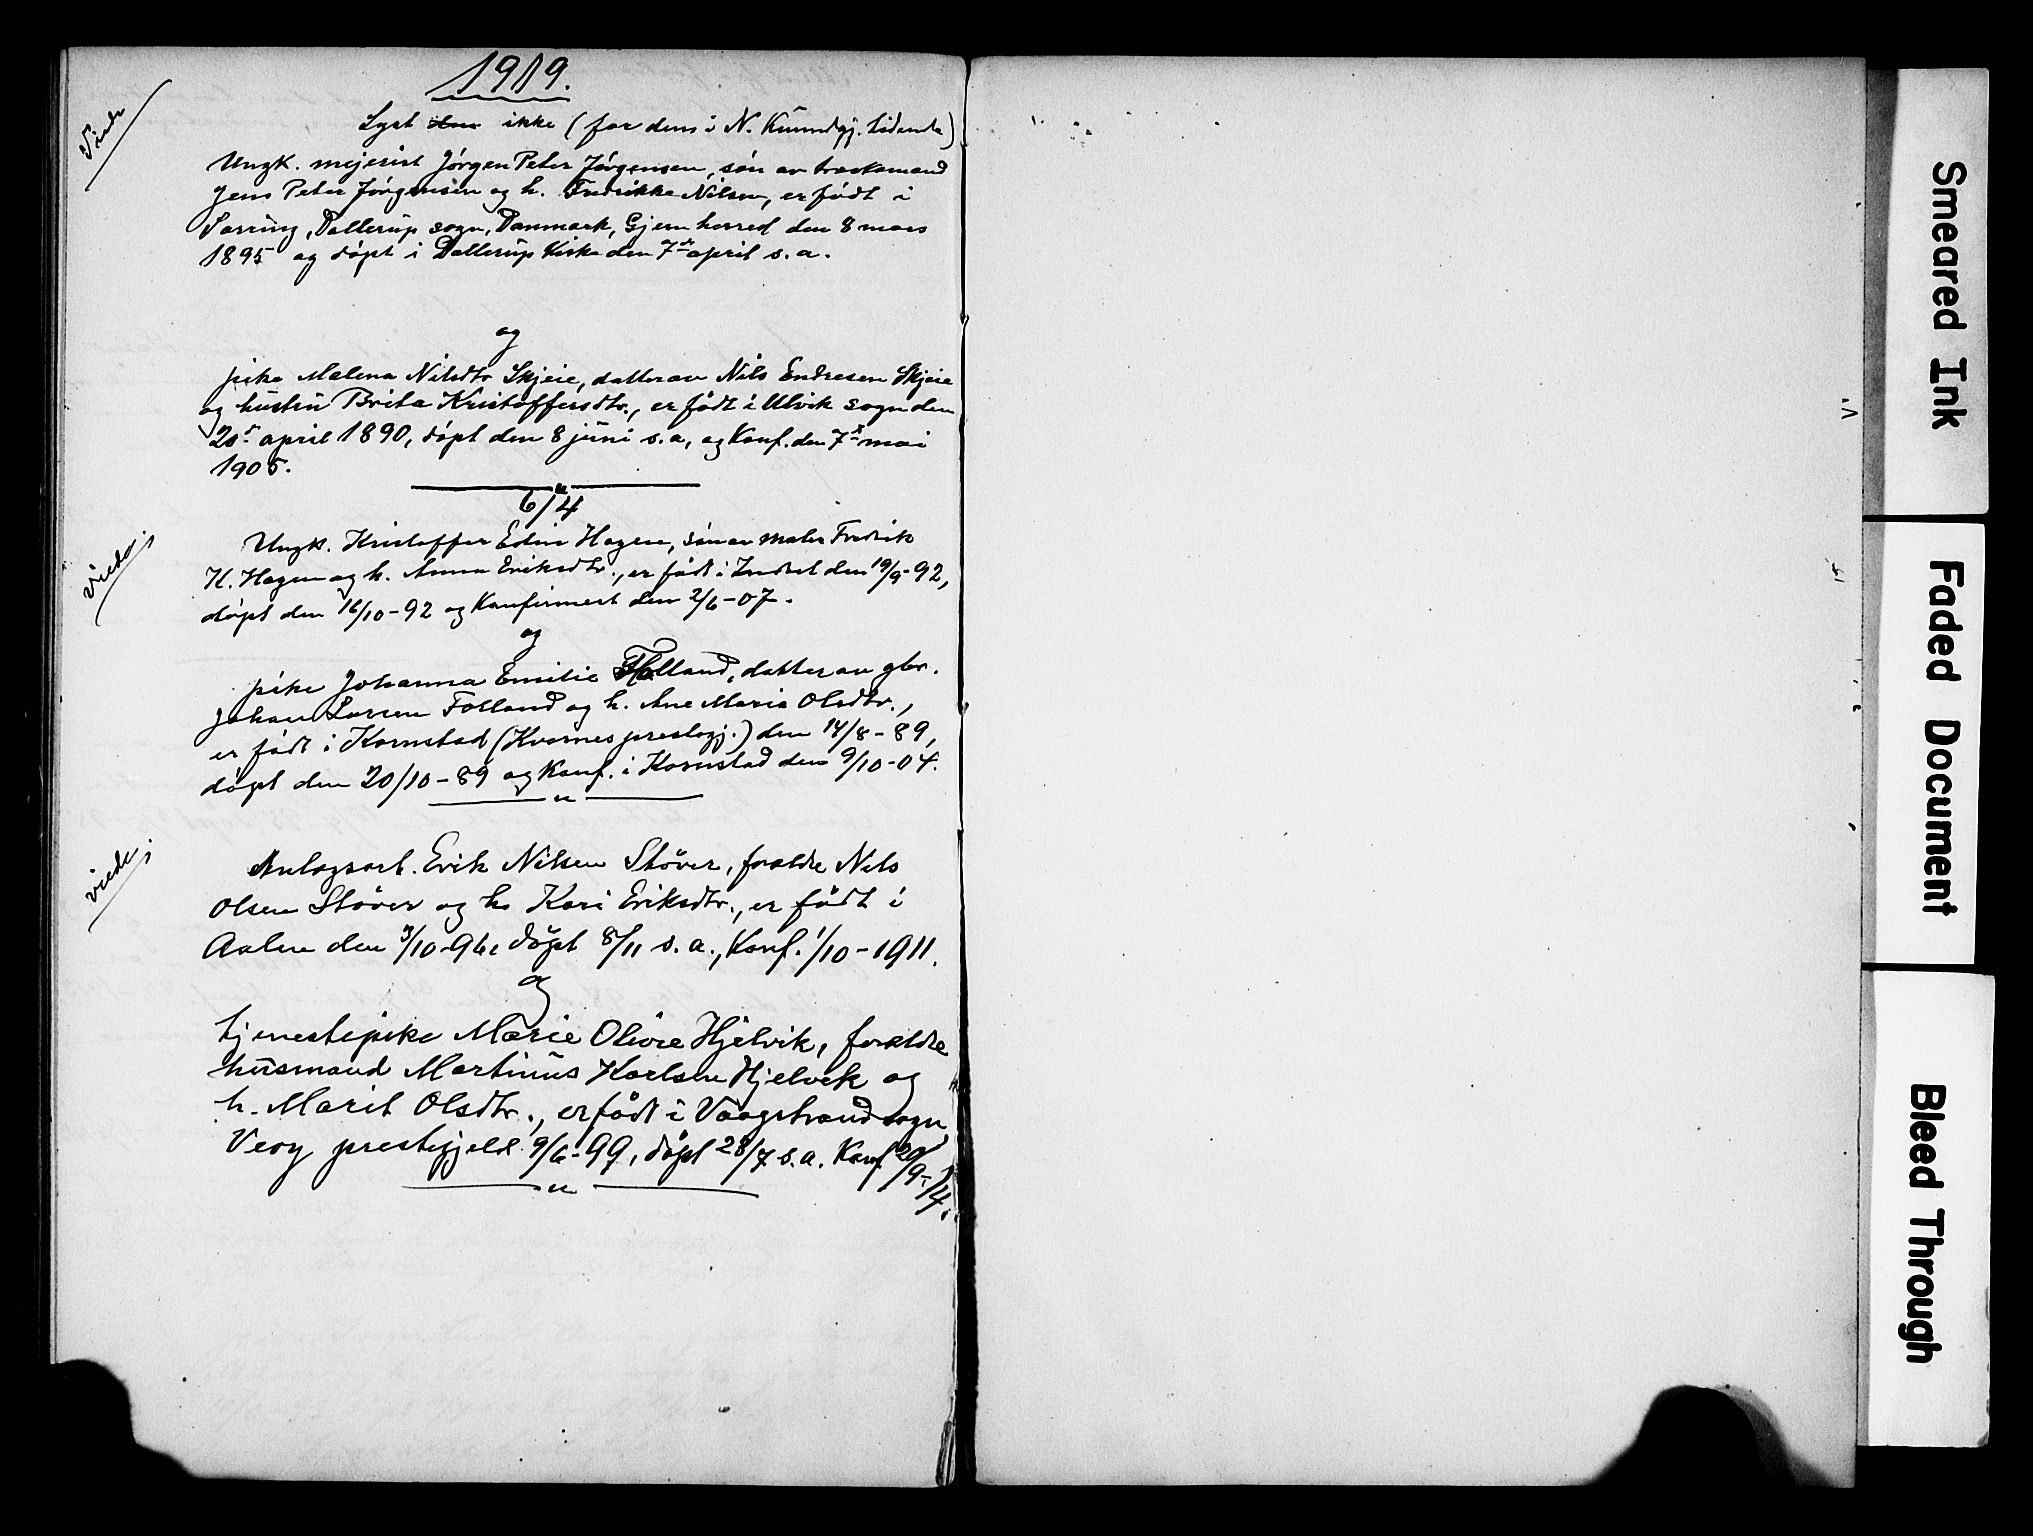 1919.
Lyst ikke (for dem i N. Kunndgj. tidende)
Viede
Ungk. mejerist Jörgen Peter Jörgensen, sön av
Jens Peter Jörgensen og h. Fredrikke Nilsen, er födt i
Sorring, Dallerup sogn, Danmark, Gjern herred den 8 mars
1895 og döpt i Dallerup Kirke den 7 april s. a.
og
pike Malena Nilsdtr Skjeie, datter av Nils Endresen Skjeie
og hustru Brita Kristoffersdtr., er födt i Ulvik sogn den
20 april 1890, döpt den 8 juni s. a, og Konf. den 7 mai
1905.
6/4
viede
Ungk. Kristoffer Edin Hagen, sön av maler Fredrik
H. Hagen og h. Anna Eriksdtr., er födt i Indset den 19/9-92,
döpt den 16/10-92 og Konfirmert den 2/6-07.
og
pike Johanna Emilie Folland, datter av gbr.
Johan Larsen Folland og h. Ane Marie Olsdtr.,
er födt i Kornstad (Kvernes prestegj.) den 14/8-89,
döpt den 20/10-89 og Konf. i Kornstad den 9/10-04.
viede
Anlegsarb. Erik Nilsen Stöver, foreldre Nils
Olsen Stöver og h. Kari Eriksdtr., er födt i
Aalen den 3/10-96, döpt 8/11 s. a., Konf. 1/10-1911.
og
tjenestepike Marie Olivie Hjelvik, foreldre
husmand Martinus Karlsen Hjelvik og
h. Marit Olsdtr., er födt i Vaagstrand sogn
Veöy prestegjeld 9/6-99, döpt 28/7 s. a. Konf 20/9-14.
Smeared Ink
Faded Document
Bleed Through